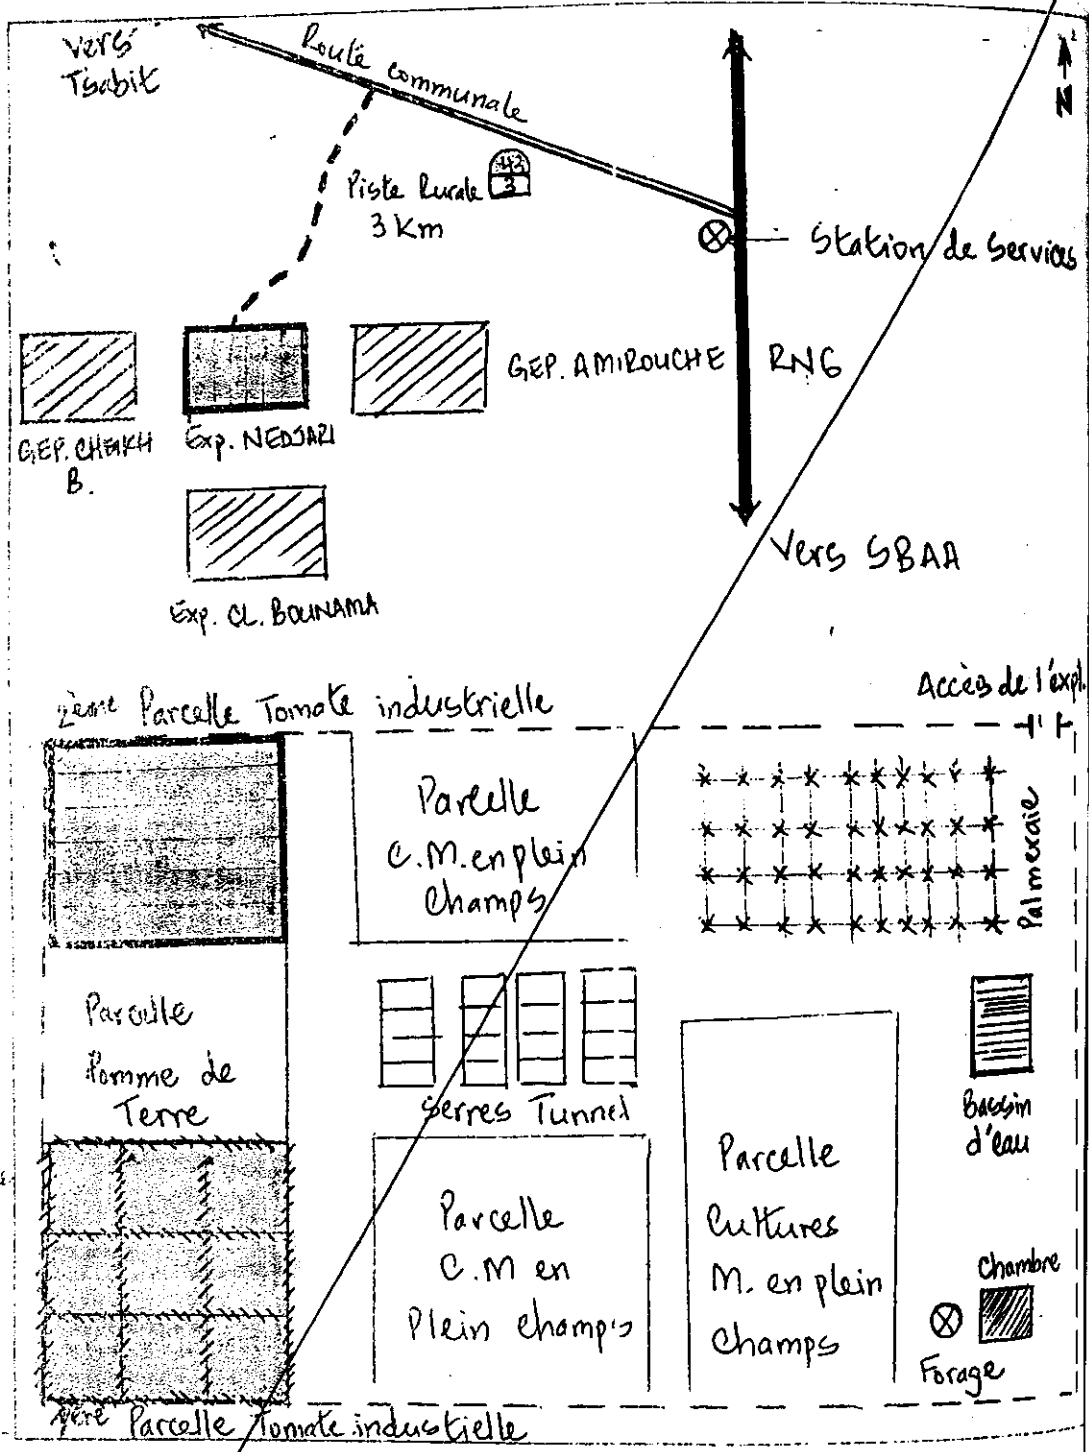 Vers
Tsabit
Route communale
N
Piste Rurale
3 Km
43
3
Station de Services
GEP. AMIROUCHE
RN6
GEP. CHEIKH
B.
Exp. NEDJARI
Exp. CL. BOUNAMA
Vers SBAA
Accès de l'expl.
2ème Parcelle Tomate industrielle
Parcelle
C.M. en plein
Champs
Palmeraie
Parcelle
Pomme de
Terre
Serres Tunnel
Bassin
d'eau
Parcelle
C.M en
Plein champs
Parcelle
Cultures
M. en plein
Champs
Chambre
Forage
1ère Parcelle Tomate industielle